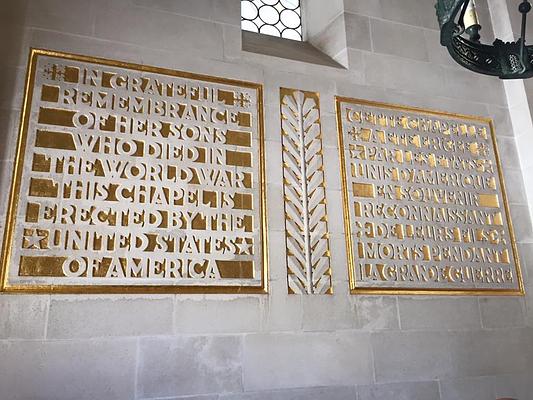 IN GRATEFUL
REMEMBRANCE
OF HER SONS
WHO DIED IN
THE WORLD WAR
THIS CHAPEL IS
ERECTED BY THE
UNITED STATES
OF AMERICA
CETTE CHAPELLE
A ETE ERIGEE
PAR LES ETATS
UNIS D'AMERIQUE
EN SOUVENIR
RECONNAISSANT
DE LEURS FILS
MORTS PENDANT
LA GRANDE GUERRE